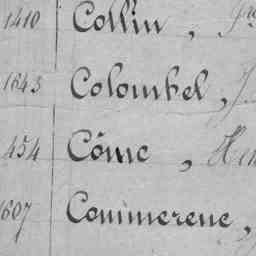 1410 Collin,
1643 Colombel, J
454 Côme, Hen
1607 Commerene,